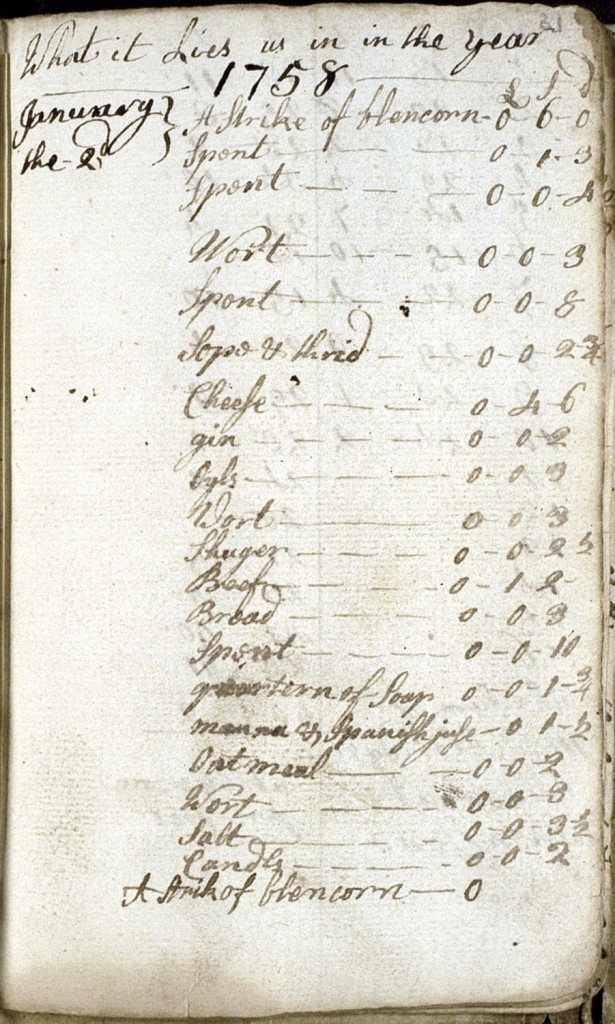 What it Lies us in in the year
1758 £ s d
January
the 2d
A Strike of blencorn - 0 6 - 0
Spent 0 - 1 - 3
Spent 0 - 0 - 4
Wort 0 - 0 - 3
Spent 0 - 0 - 8
Sope & thrid 0 - 0 - 2 3/4
Cheese 0 - 4 - 6
gin 0 - 0 2
Oyls 0 - 0 - 3
Wort 0 - 0 3
Shuger 0 - 0 - 2 1/2
Beef 0 - 1 2
Bread 0 - 0 - 3
Spent 0 - 0 - 10
quartern of Soap 0 - 0 - 1 - 3/4
manna & Spanish juse - 0 1 - 1/2
Oatmeal 0 - 0 - 2
Wort 0 - 0 - 3
Salt 0 - 0 - 3 1/2
Candls 0 - 0 - 2
A Strik of blencorn - 0